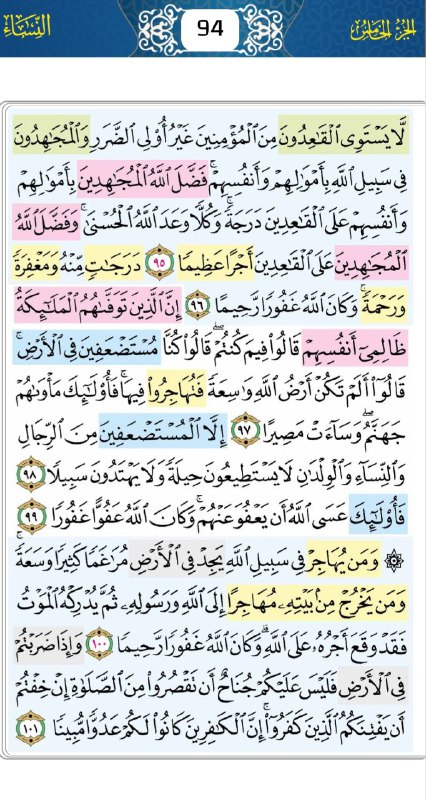 الجزء الخامس
94
النساء
لَّا يَسْتَوِى ٱلْقَٰعِدُونَ مِنَ ٱلْمُؤْمِنِينَ غَيْرُ أُو۟لِى ٱلضَّرَرِ وَٱلْمُجَٰهِدُونَ
فِى سَبِيلِ ٱللَّهِ بِأَمْوَٰلِهِمْ وَأَنفُسِهِمْ ۚ فَضَّلَ ٱللَّهُ ٱلْمُجَٰهِدِينَ بِأَمْوَٰلِهِمْ
وَأَنفُسِهِمْ عَلَى ٱلْقَٰعِدِينَ دَرَجَةً ۚ وَكُلًّا وَعَدَ ٱللَّهُ ٱلْحُسْنَىٰ ۚ وَفَضَّلَ ٱللَّهُ
ٱلْمُجَٰهِدِينَ عَلَى ٱلْقَٰعِدِينَ أَجْرًا عَظِيمًا ٩٥ دَرَجَٰتٍ مِّنْهُ وَمَغْفِرَةً
وَرَحْمَةً ۚ وَكَانَ ٱللَّهُ غَفُورًا رَّحِيمًا ٩٦ إِنَّ ٱلَّذِينَ تَوَفَّىٰهُمُ ٱلْمَلَٰٓئِكَةُ
ظَالِمِىٓ أَنفُسِهِمْ قَالُوا۟ فِيمَ كُنتُمْ ۖ قَالُوا۟ كُنَّا مُسْتَضْعَفِينَ فِى ٱلْأَرْضِ ۚ
قَالُوٓا۟ أَلَمْ تَكُنْ أَرْضُ ٱللَّهِ وَٰسِعَةً فَتُهَاجِرُوا۟ فِيهَا ۚ فَأُو۟لَٰٓئِكَ مَأْوَىٰهُمْ
جَهَنَّمُ ۖ وَسَآءَتْ مَصِيرًا ٩٧ إِلَّا ٱلْمُسْتَضْعَفِينَ مِنَ ٱلرِّجَالِ
وَٱلنِّسَآءِ وَٱلْوِلْدَٰنِ لَا يَسْتَطِيعُونَ حِيلَةً وَلَا يَهْتَدُونَ سَبِيلًا ٩٨
فَأُو۟لَٰٓئِكَ عَسَى ٱللَّهُ أَن يَعْفُوَ عَنْهُمْ ۚ وَكَانَ ٱللَّهُ عَفُوًّا غَفُورًا ٩٩
۞ وَمَن يُهَاجِرْ فِى سَبِيلِ ٱللَّهِ يَجِدْ فِى ٱلْأَرْضِ مُرَٰغَمًا كَثِيرًا وَسَعَةً ۚ
وَمَن يَخْرُجْ مِنۢ بَيْتِهِۦ مُهَاجِرًا إِلَى ٱللَّهِ وَرَسُولِهِۦ ثُمَّ يُدْرِكْهُ ٱلْمَوْتُ
فَقَدْ وَقَعَ أَجْرُهُۥ عَلَى ٱللَّهِ ۗ وَكَانَ ٱللَّهُ غَفُورًا رَّحِيمًا ١٠٠ وَإِذَا ضَرَبْتُمْ
فِى ٱلْأَرْضِ فَلَيْسَ عَلَيْكُمْ جُنَاحٌ أَن تَقْصُرُوا۟ مِنَ ٱلصَّلَوٰةِ إِنْ خِفْتُمْ
أَن يَفْتِنَكُمُ ٱلَّذِينَ كَفَرُوٓا۟ ۚ إِنَّ ٱلْكَٰفِرِينَ كَانُوا۟ لَكُمْ عَدُوًّا مُّبِينًا ١٠١